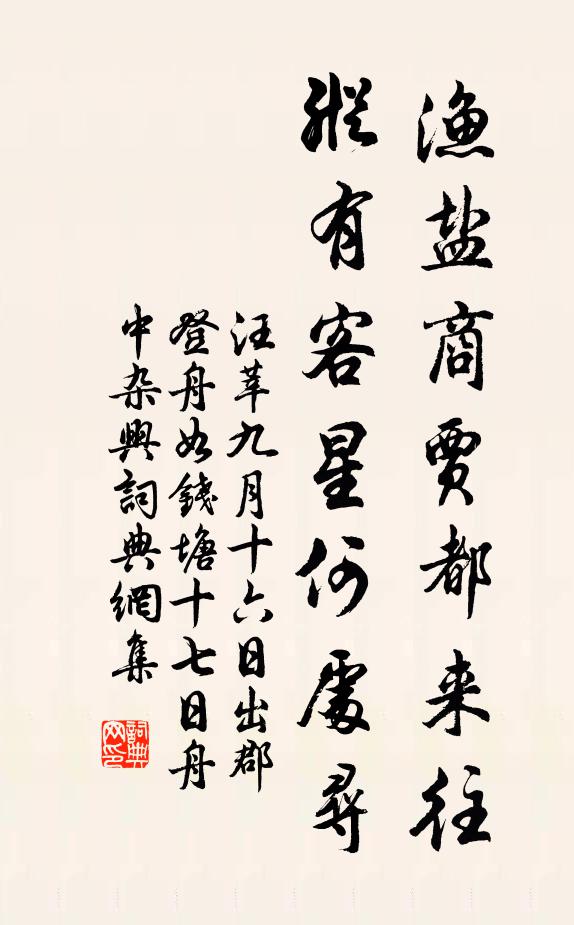 渔盐商贾都来往
縱有客星何處尋
汪莘九月十六日出郡
登舟如錢塘十七日舟
中杂興詞典網集
詞典
网印